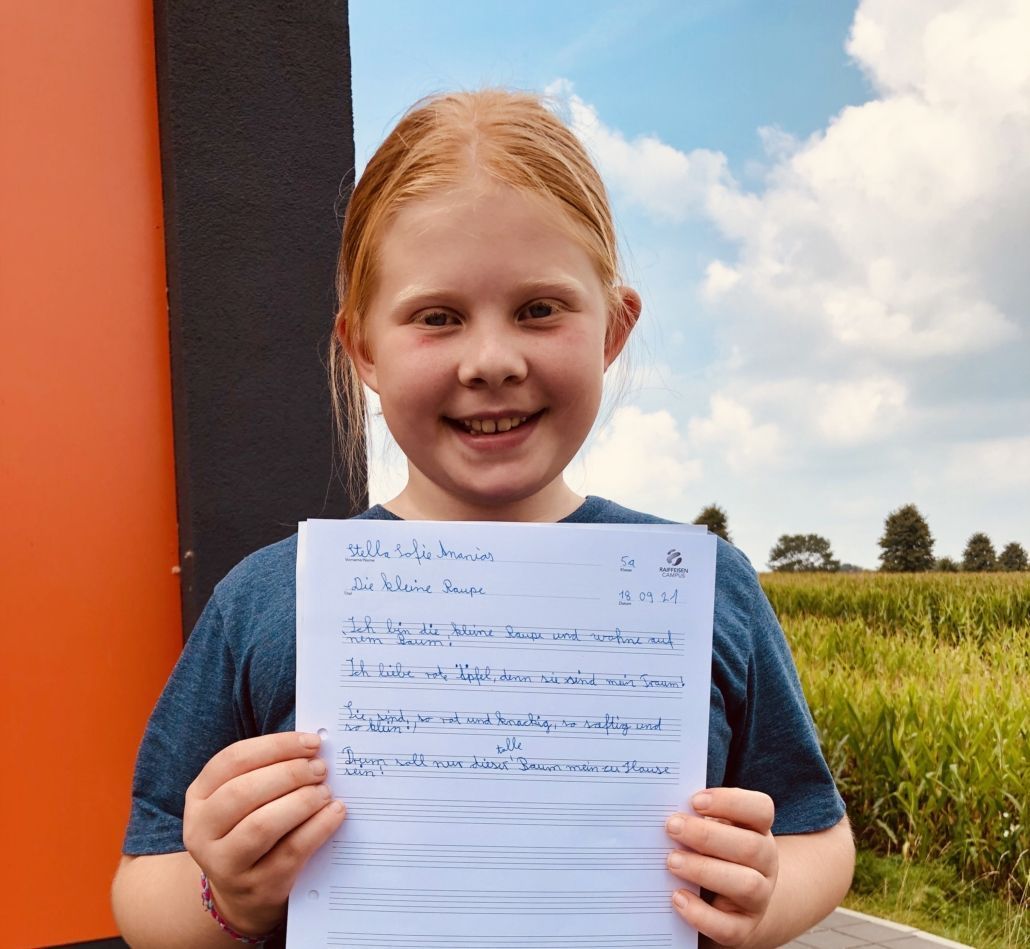 Stella Sofie Ananias
Vorname/Name
5a
Klasse
RAIFFEISEN
CAMPUS
Die kleine Raupe
Titel
18 09 21
Datum
Ich bin die kleine Raupe und wohne auf
nem Baum!
Ich liebe rote Äpfel, denn sie sind mein Traum!
Sie sind, so rot und knackig, so saftig und
so klein!
tolle
Drum soll nur dieser Baum mein zu Hause
sein!